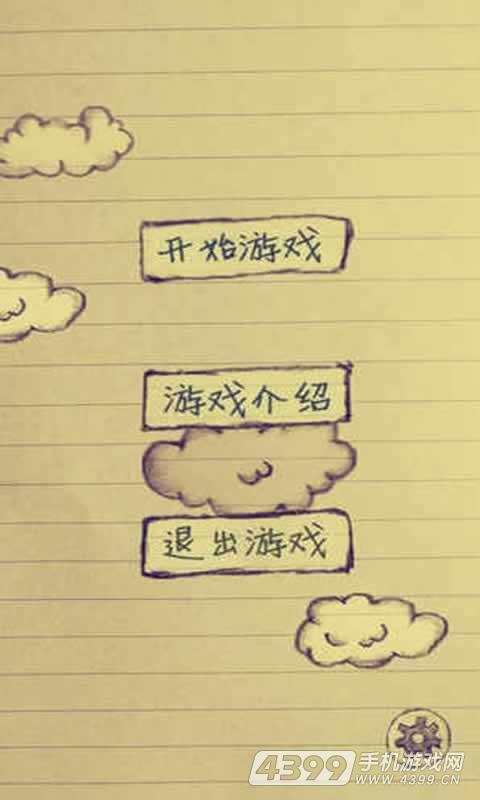 开始游戏
游戏介绍
退出游戏
4399手机游戏网
www.4399.cn